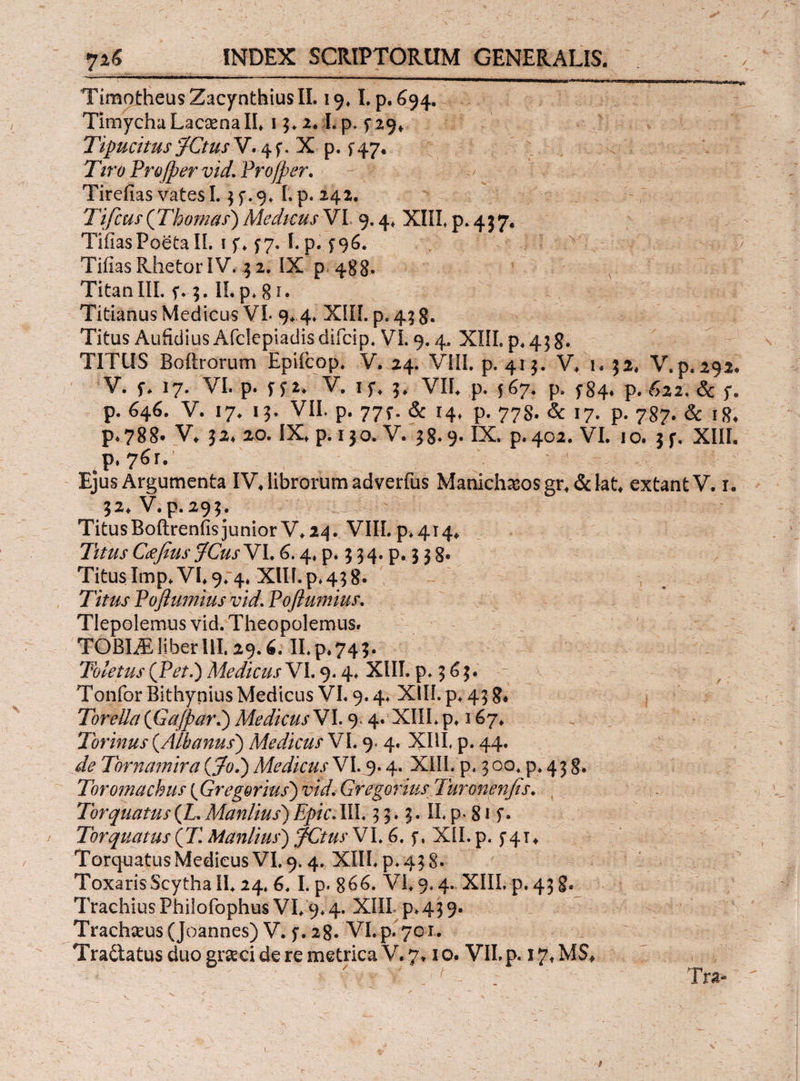 726 INDEX SCRIPTORUM GENERALIS.
Timotheus Zacynthius II. 19. I. p. 694.
Timycha Lacæna II. 13. 2. I. p. 529.
Tipucitus JCtus V. 45. X p. 547.
Tiro Prosper vid. Prosper.
Tiresias vates I. 35. 9. I. p. 242.
Tiscus (Thomas) Medicus VI. 9. 4. XIII. p. 437.
Tisias Poëta II. 15. 57. I. p. 596.
Tisias Rhetor IV. 32. IX p. 488.
Titan III. 5. 3. II. p. 81.
Titianus Medicus VI. 9. 4. XIII. p. 438.
Titus Aufidius Asclepiadis discip. VI. 9. 4. XIII. p. 438.
TITUS Bostrorum Episcop. V. 24. VIII. p. 413. V. 1. 32. V. p. 292.
V. 5. 17. VI. p. 552. V. 15. 3. VII. p. 567. p. 584. p. 622. & 5.
p. 646. V. 17. 13. VII. p. 775. & 14. p. 778. & 17. p. 787. & 18.
p. 788. V. 32. 20. IX. p. 130. V. 38. 9. IX. p. 402. VI. 10. 35. XIII.
p. 761.
Ejus Argumenta IV. librorum adversus Manichæos gr. & lat. extant V. 1.
32. V. p. 293.
Titus Bostrensis junior V. 24. VIII. p. 414.
Titus Cæsius JCus VI. 6. 4. p. 334. p. 338.
Titus Imp. VI. 9. 4. XIII. p. 438.
Titus Postumius vid. Postumius.
Tlepolemus vid. Theopolemus.
TOBIÆ liber III. 29. 6. II. p. 743.
Toletus (Pet.) Medicus VI. 9. 4. XIII. p. 363.
Tonsor Bithynius Medicus VI. 9. 4. XIII. p. 438.
Torella (Gaspar.) Medicus VI. 9. 4. XIII. p. 167.
Torinus (Albanus) Medicus VI. 9. 4. XIII. p. 44.
de Tornamira (Jo.) Medicus VI. 9. 4. XIII. p. 300. p. 438.
Toromachus (Gregorius) vid. Gregorius Turonensis.
Torquatus (L. Manlius) Epic. III. 33. 3. II. p. 815.
Torquatus (T. Manlius) JCtus VI. 6. 5. XII. p. 541.
Torquatus Medicus VI. 9. 4. XIII. p. 438.
Toxaris Scytha II. 24. 6. I. p. 866. VI. 9. 4. XIII. p. 438.
Trachius Philosophus VI. 9. 4. XIII. p. 439.
Trachæus (Joannes) V. 5. 28. VI. p. 701.
Tractatus duo græci de re metrica V. 7. 10. VII. p. 17. MS.
Tra-